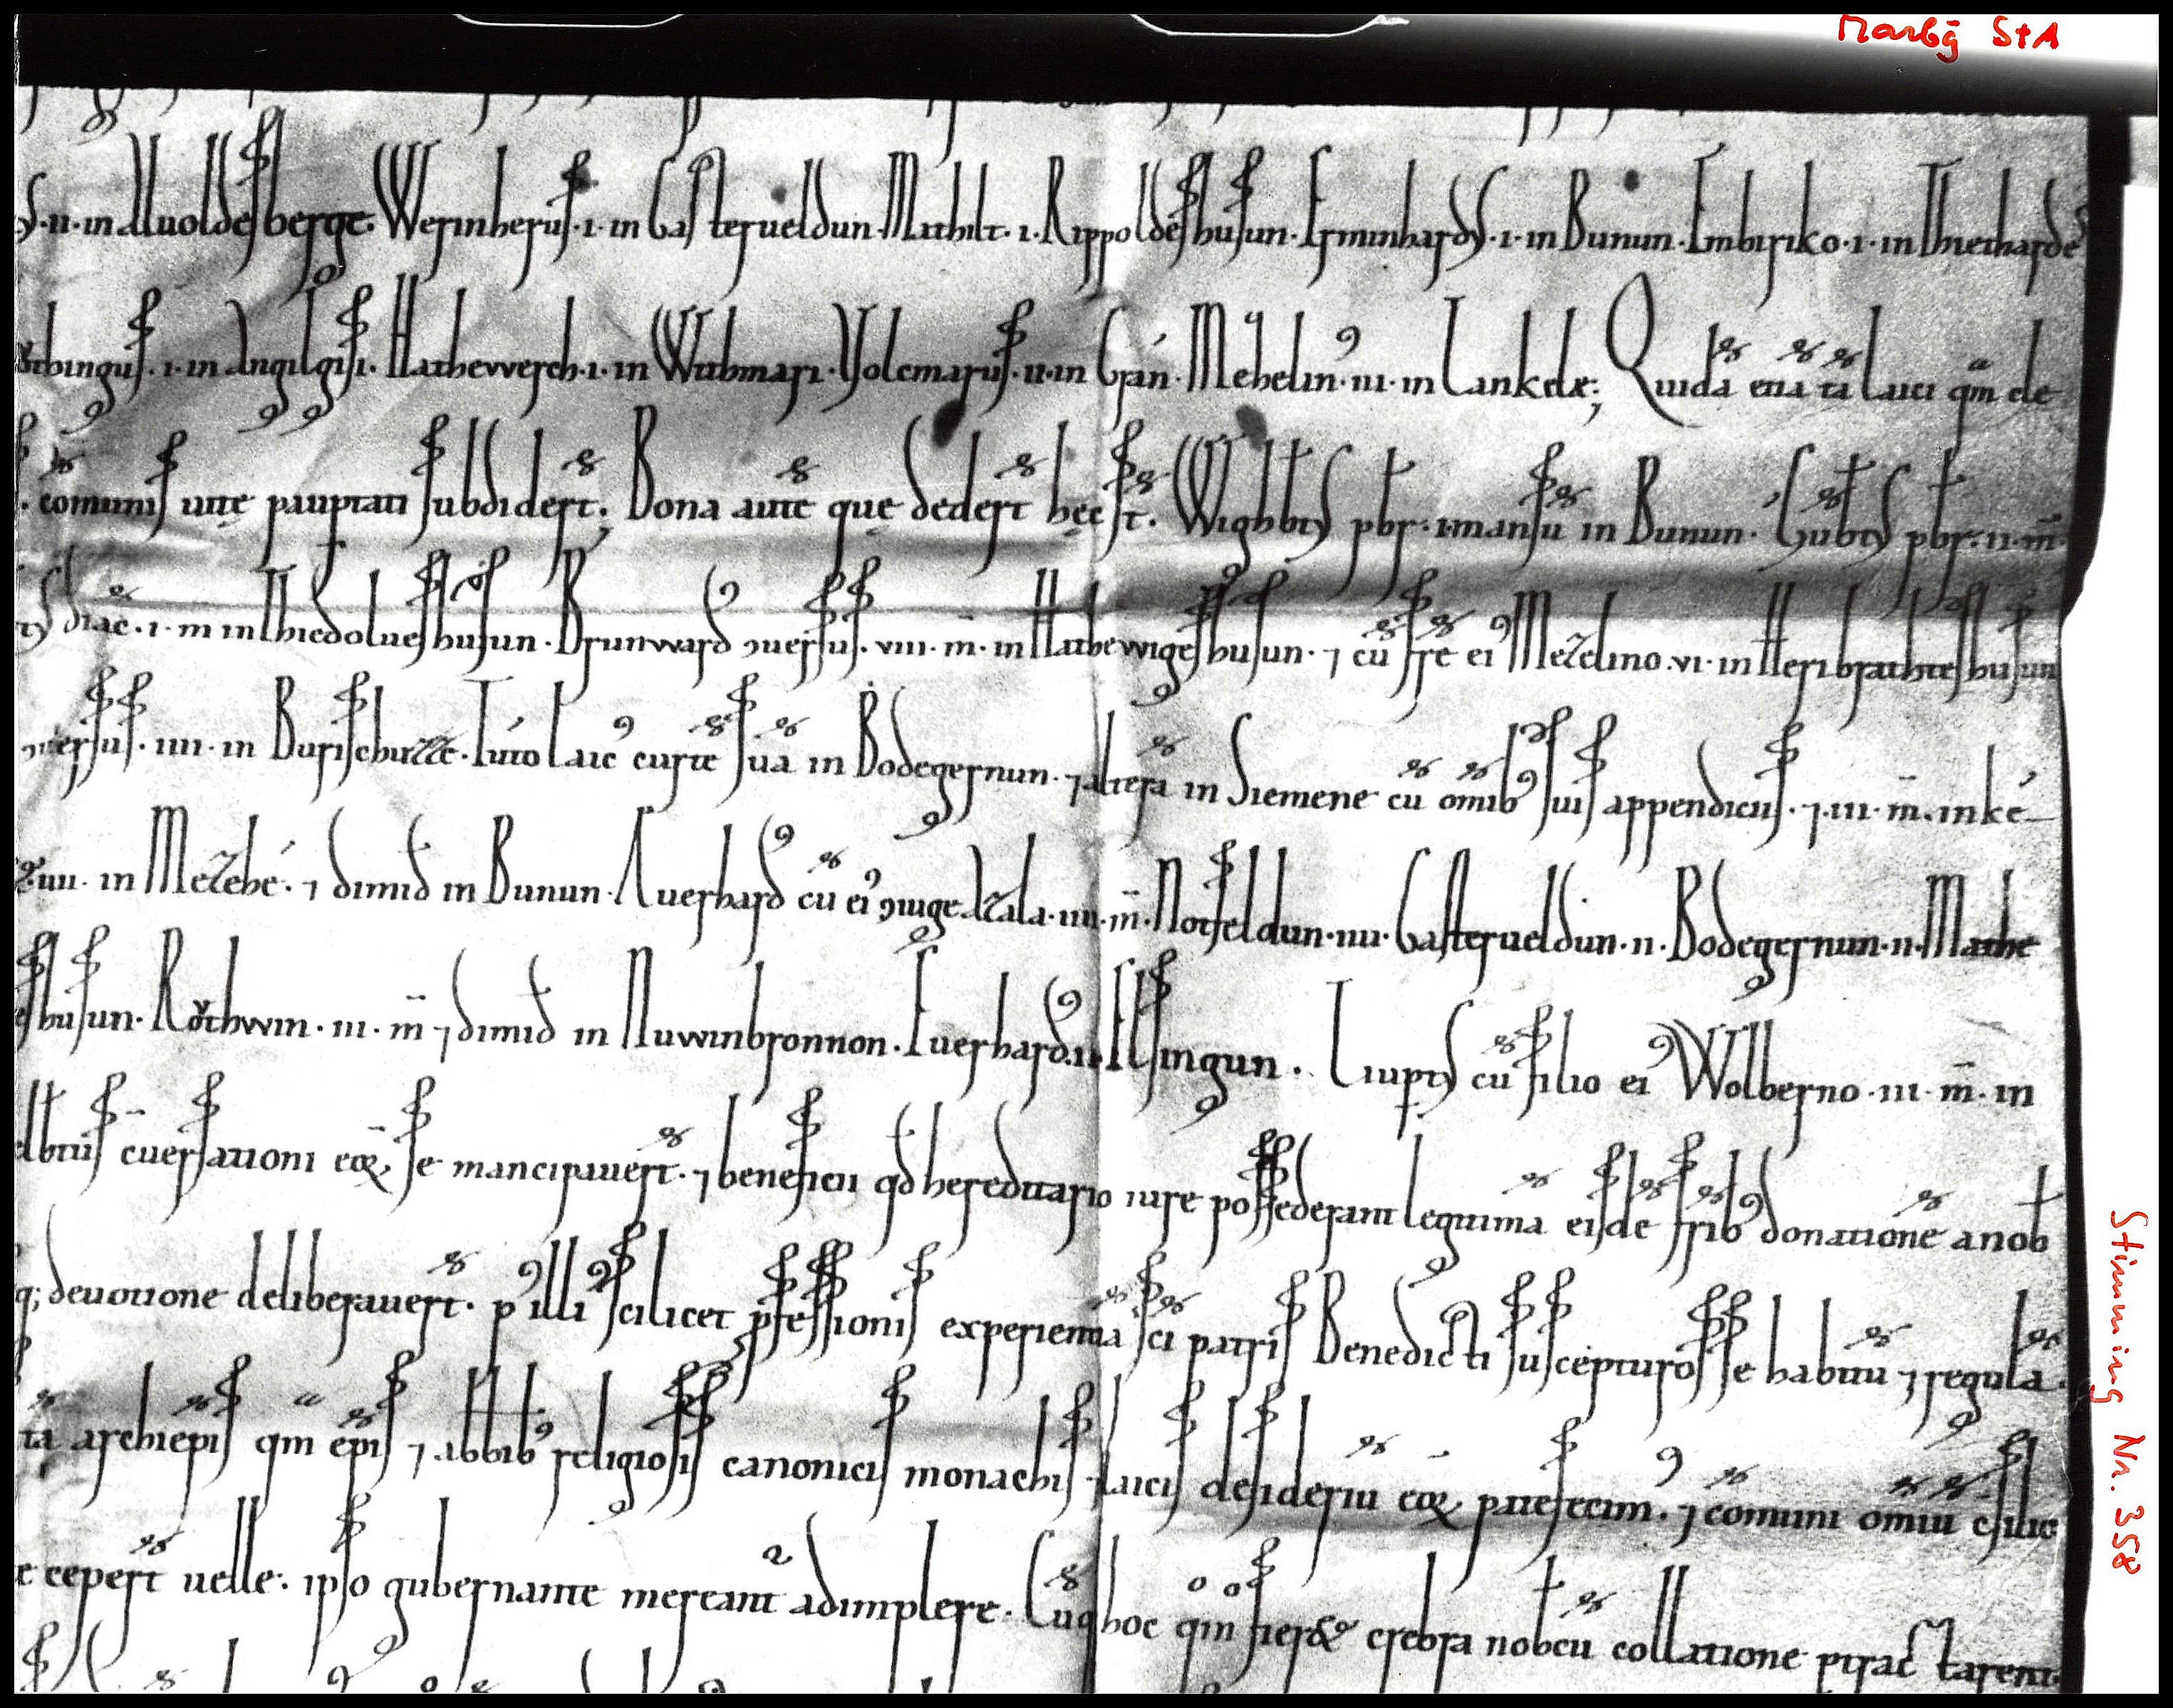 Marbg StA
·II· in Auoldesberge. Werinherus ·I· in Gasterueldun. Mathilt ·I· Rippoldeshusun. Erminhardus ·I· in Bunun. Embiriko ·I· in Thietharde
·I· in Angilgisi. Hathewerch ·I· in Witbmari. Volcmarus ·II· in Gran. Mehelin⁹ ·III· in Lankele; Quidā etiā tā laici qm̄ cle
comunis uite paup̄tati subdidert̄; Bona autē que dedert̄ hec st̄. Wighbt⁹ pb̄r ·I· mansū in Bunun. pb̄r ·II· m̄
diāc ·I· m̄ in Thiedolueshusun. Brunward ꝯuersus ·VIII· m̄ in Hathewigeshusun. ⁊ cū fr̄e ei⁹ Mezelino ·VI· in Heribrahteshusun
ꝯuersus ·IIII· in Burischuzze. Tuto laic⁹ curtē suā in Bodegernun. ⁊ alterā in Siemene cū omib⁹ suis appendiciis. ⁊ ·III· m̄ in ké
in Mezehé. ⁊ dimid̄ in Bunun. Auerhard⁹ cū ei⁹ ꝯiuge Azala ·IIII· m̄. Notfeldun ·IIII· Gasterueldun ·II· Bodegernun ·II· Mathe
eshusun. Rͦthwin ·III· m̄ ⁊ dimid̄ in Nuwinbronnon. Euerhard⁹ ·II· Elsingun. Liupt⁹ cū filio ei⁹ Wolberno ·III· m̄ in
c̄uersationi eoꝝ se mancipauert̄. ⁊ beneficii qd̄ hereditario iure possederant legitima eisdē fr̄ib⁹ donatione a nob̄
q; deuotione deliberauert̄. p⁹ illi⁹ scilicet p̄fessionis experientiā sc̄i patris Benedicti suscepturos se habitū ⁊ regulā.
tā archiep̄is qm̄ ep̄is ⁊ abb̄ib⁹ religiosis canonicis monachis ⁊ laicis desideriū eoꝝ patefecim⁹. ⁊ comuni omiū
e cepert̄ uelle. ipso gubernante mereant̄ adimplere. Cūq hoc qm̄ fier& crebra nob̄cū collatione
Stimming Nr. 358